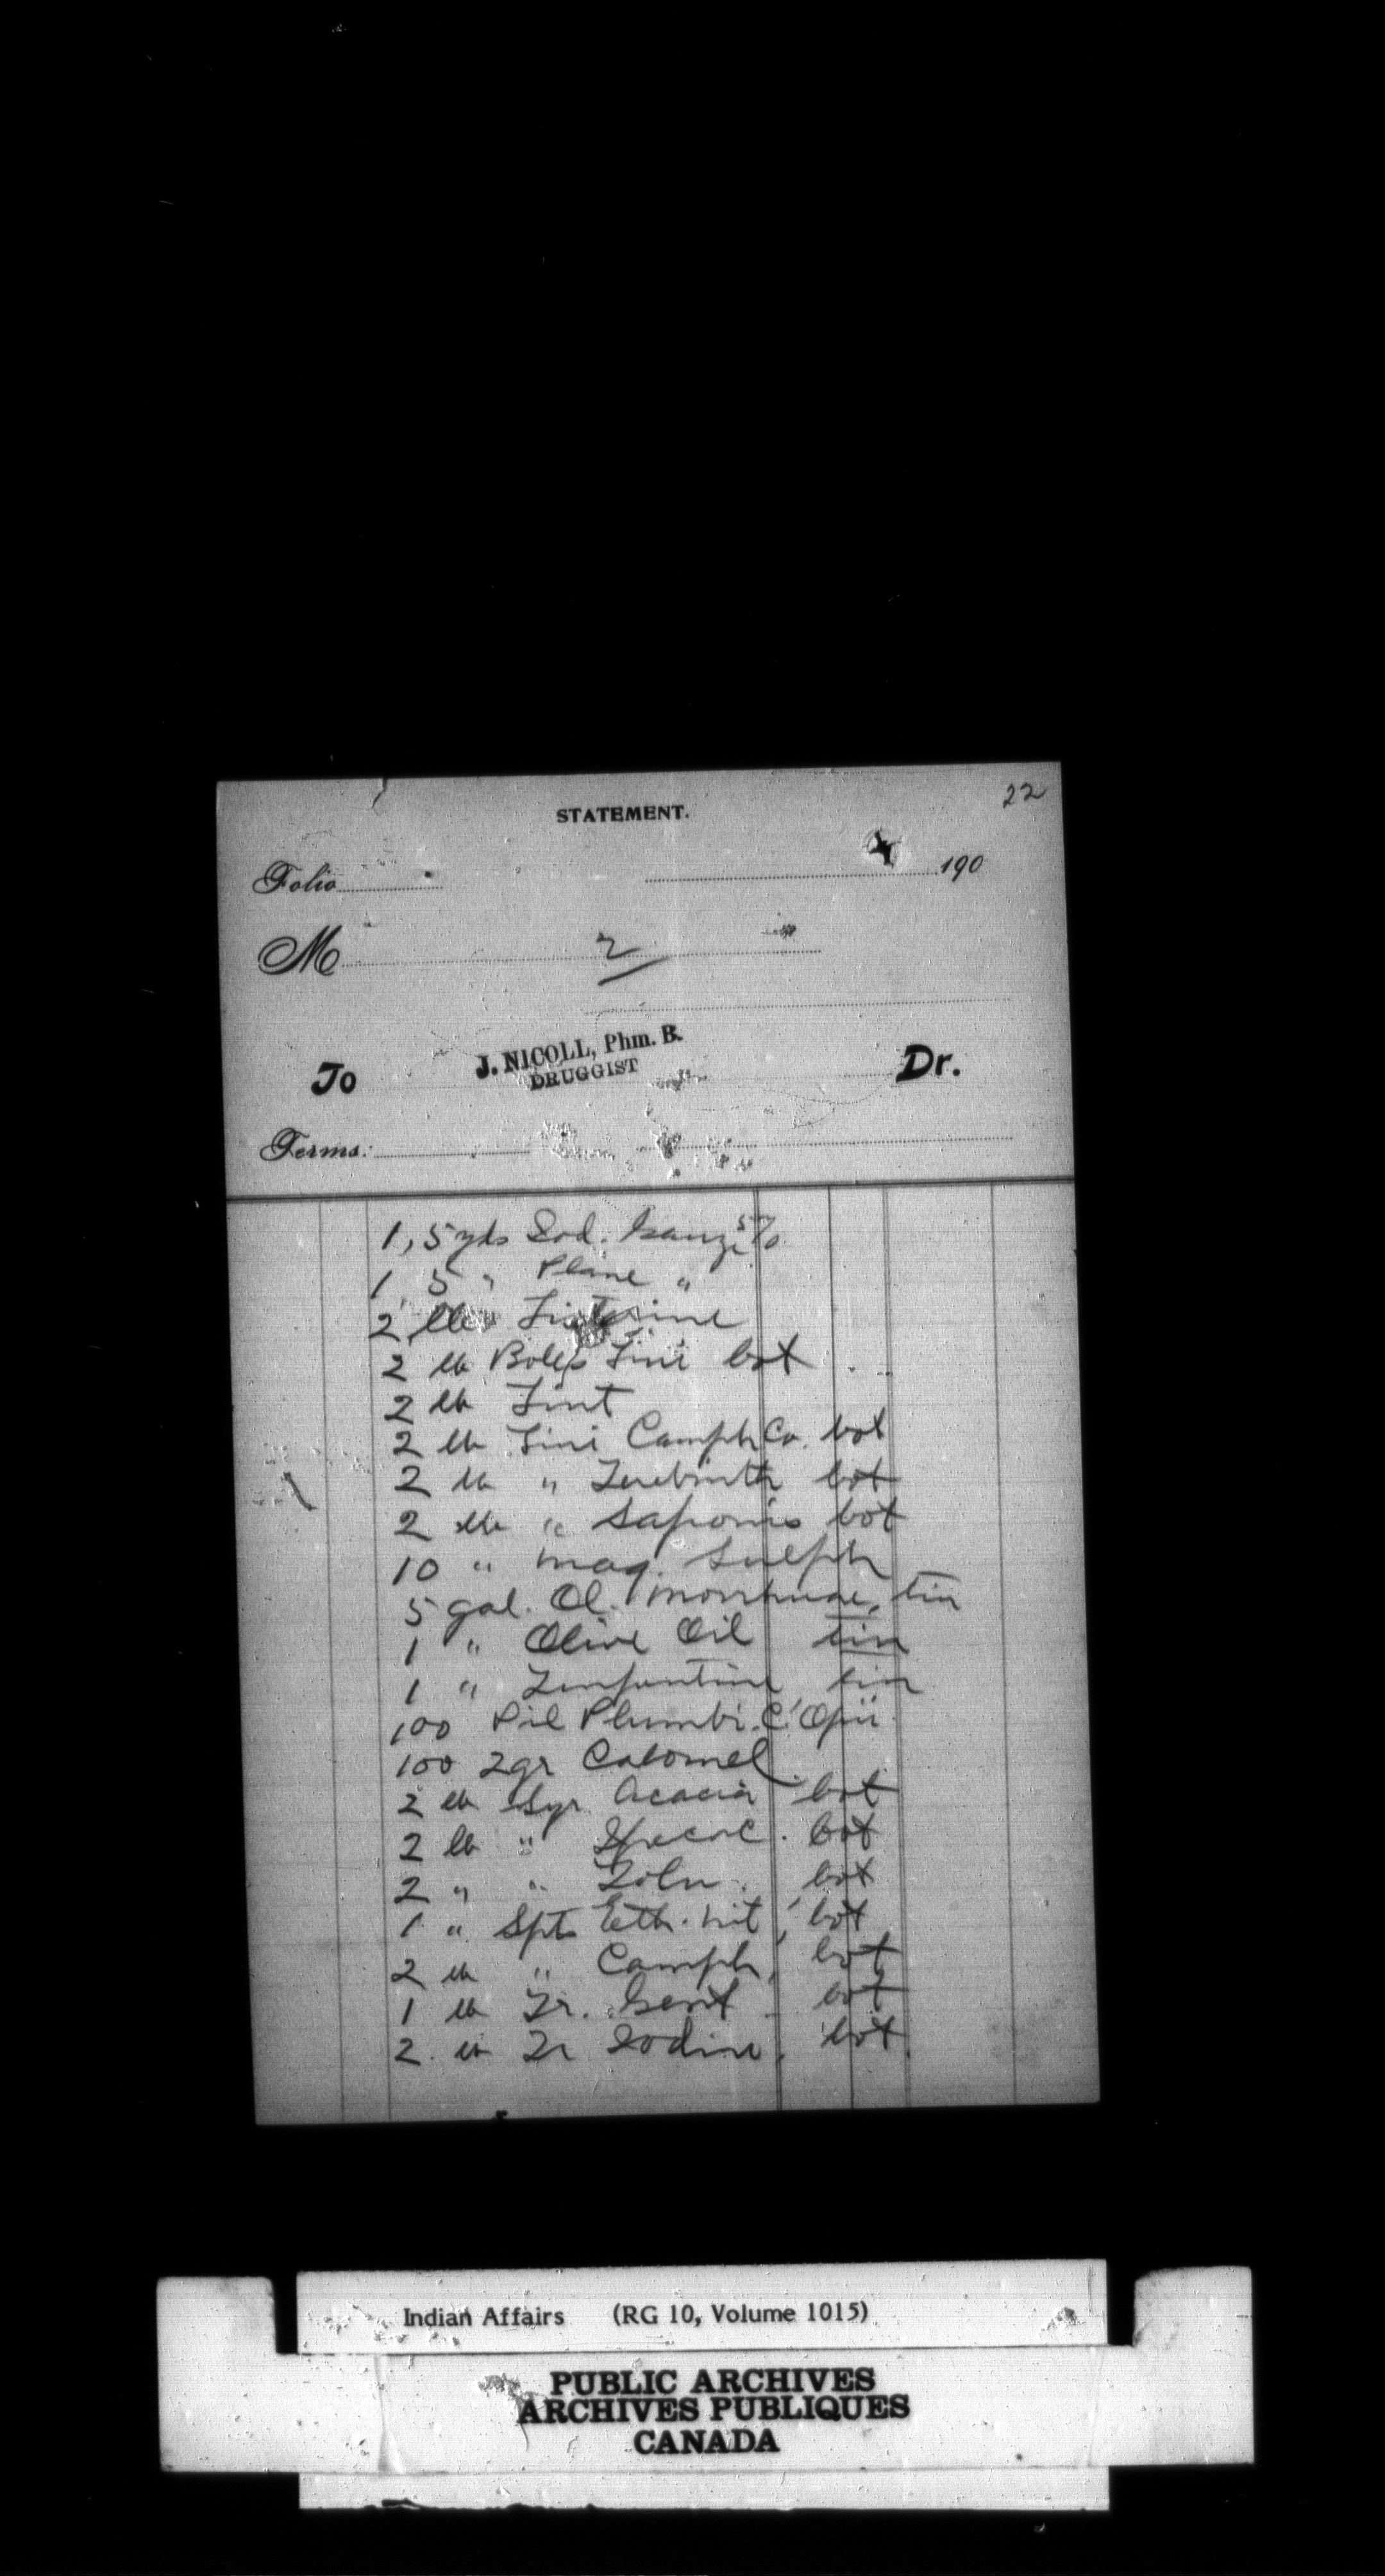 22
STATEMENT.
Folio 190
M 2
To J. NICOLL, Phm. B. Dr.
DRUGGIST
Terms:
1, 5 yds Iod. Gauze 5%
1, 5 " Plane "
2 lb Listerine
2 lb Lini bot
2 lb Lint
2 lb Lini Camph Co. bot
2 lb " Terebinth bot
2 lb " Saponis bot
10 " Mag. Sulph
5 gal. Ol. Morrhuae, tin
1 " Olive Oil tin
1 " Turpentine tin
100 Pil Plumbi. C' Opii
100 2gr Calomel
2 lb Syr Acacia bot
2 lb " Ipecac. bot
2 " " Tolu. bot
1 " Spts Eth. Nit, bot
2 lb " Camph, bot
1 lb Tr. Gent bot
2. lb Tr Iodine, bot.
Indian Affairs (RG 10, Volume 1015)
PUBLIC ARCHIVES
ARCHIVES PUBLIQUES
CANADA